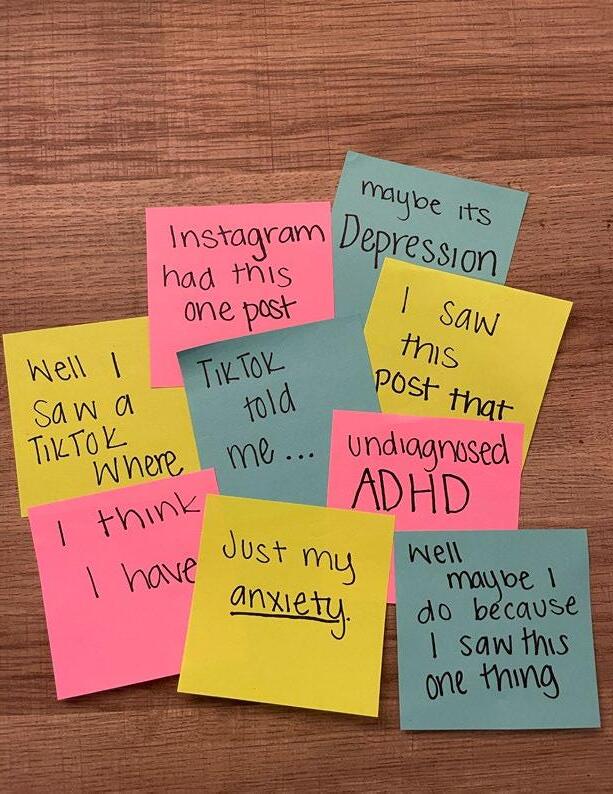 maybe its
Depression
Instagram
had this
one post
I saw
this
post that
Well I
saw a
TikTok
Where
TikTok
told
me...
undiagnosed
ADHD
I think
I have
Just my
anxiety.
Well
maybe I
do because
I saw this
one thing